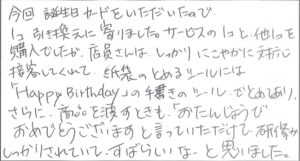 今回 誕生日カードをいただいたので、
1コ 引き換えに寄りました。サービスの1コと、他1コを
購入でしたが、店員さんは、しっかりにこやかに対応
接客してくれて、紙袋のとめるシールには
「Happy Birthday」の手書きのシールでとめてあり、
さらに、商品を渡すときも、「おたんじょうび
おめでとうございます」と言っていただけて 研修が
しっかりされていて、すばらしいな、と思いました。